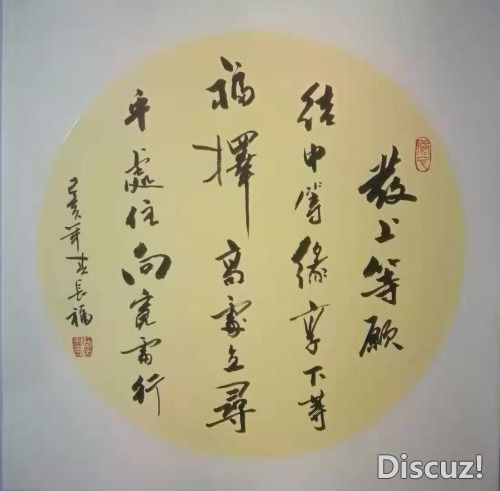 發上等願
結中等緣享下等
福擇高處立尋
平處住向寬處行
年長福
Discuz!